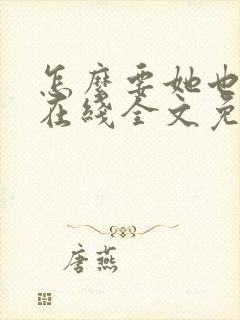 怎麼要她也
在綫全文免
唐燕